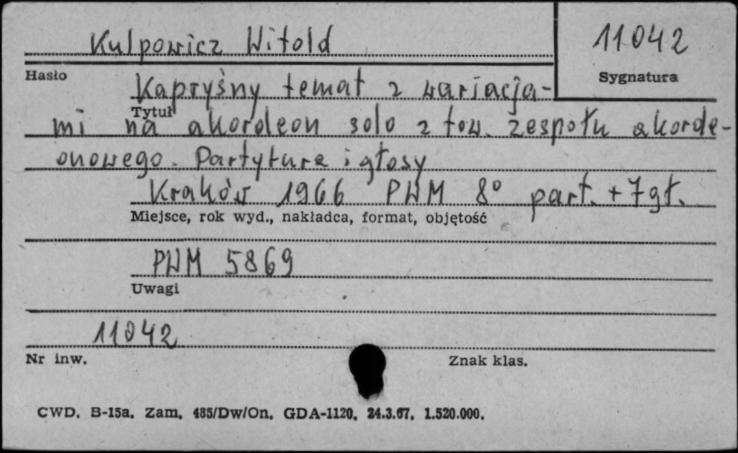 Kulpowicz Witold
11042
Hasło
Sygnatura
Kapryśny temat z wariacja-
Tytuł
mi na akordeon solo z tow. zespołu akorde-
onowego. Partytura i głosy
Kraków 1966 PWM 8° part. + 7 gł.
Miejsce, rok wyd., nakładca, format, objętość
PWM 5869
Uwagi
11042
Nr inw.
Znak klas.
CWD. B-15a. Zam. 485/Dw/On. GDA-1120. 24.3.67. 1.520.000.